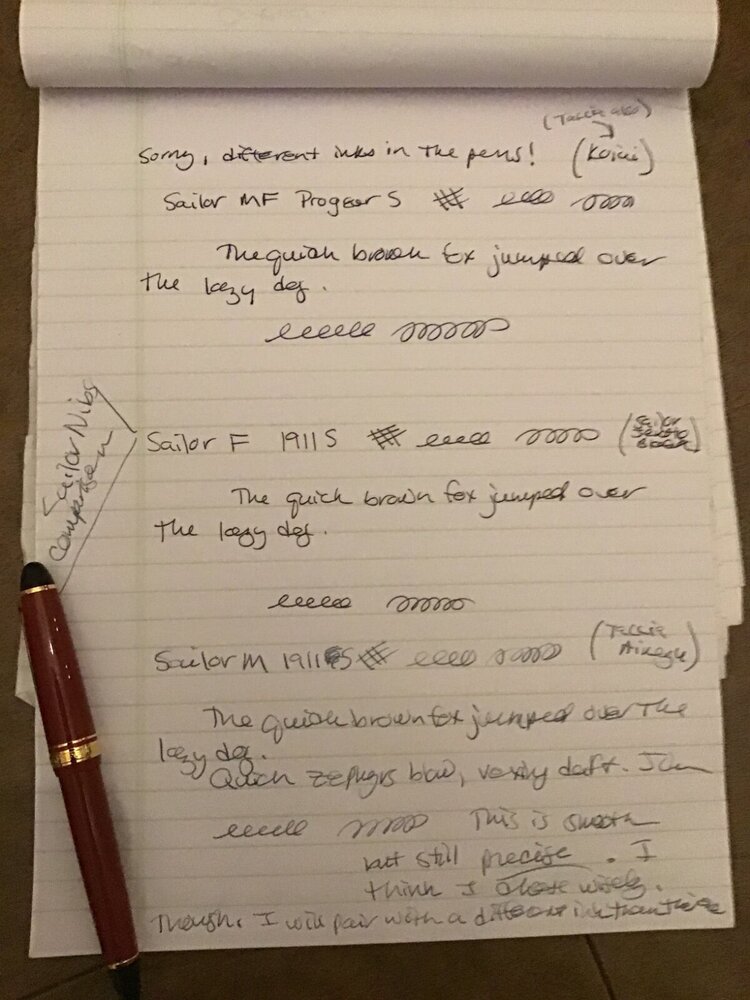 (Taccia also)
Sorry, different inks in the pens! (Koiai)
Sailor MF Progear S
The quick brown fox jumped over
the lazy dog.
Sailor Nibs
comparison
Sailor F 1911 S
The quick brown fox jumped over
the lazy dog.
Sailor M 1911 S (Taccia
The quick brown fox jumped over the
lazy dog.
Quick zephyrs blow, vexing daft. Jim
This is smooth
but still precise. I
think I chose wisely.
Though, I will pair with a different ink than these